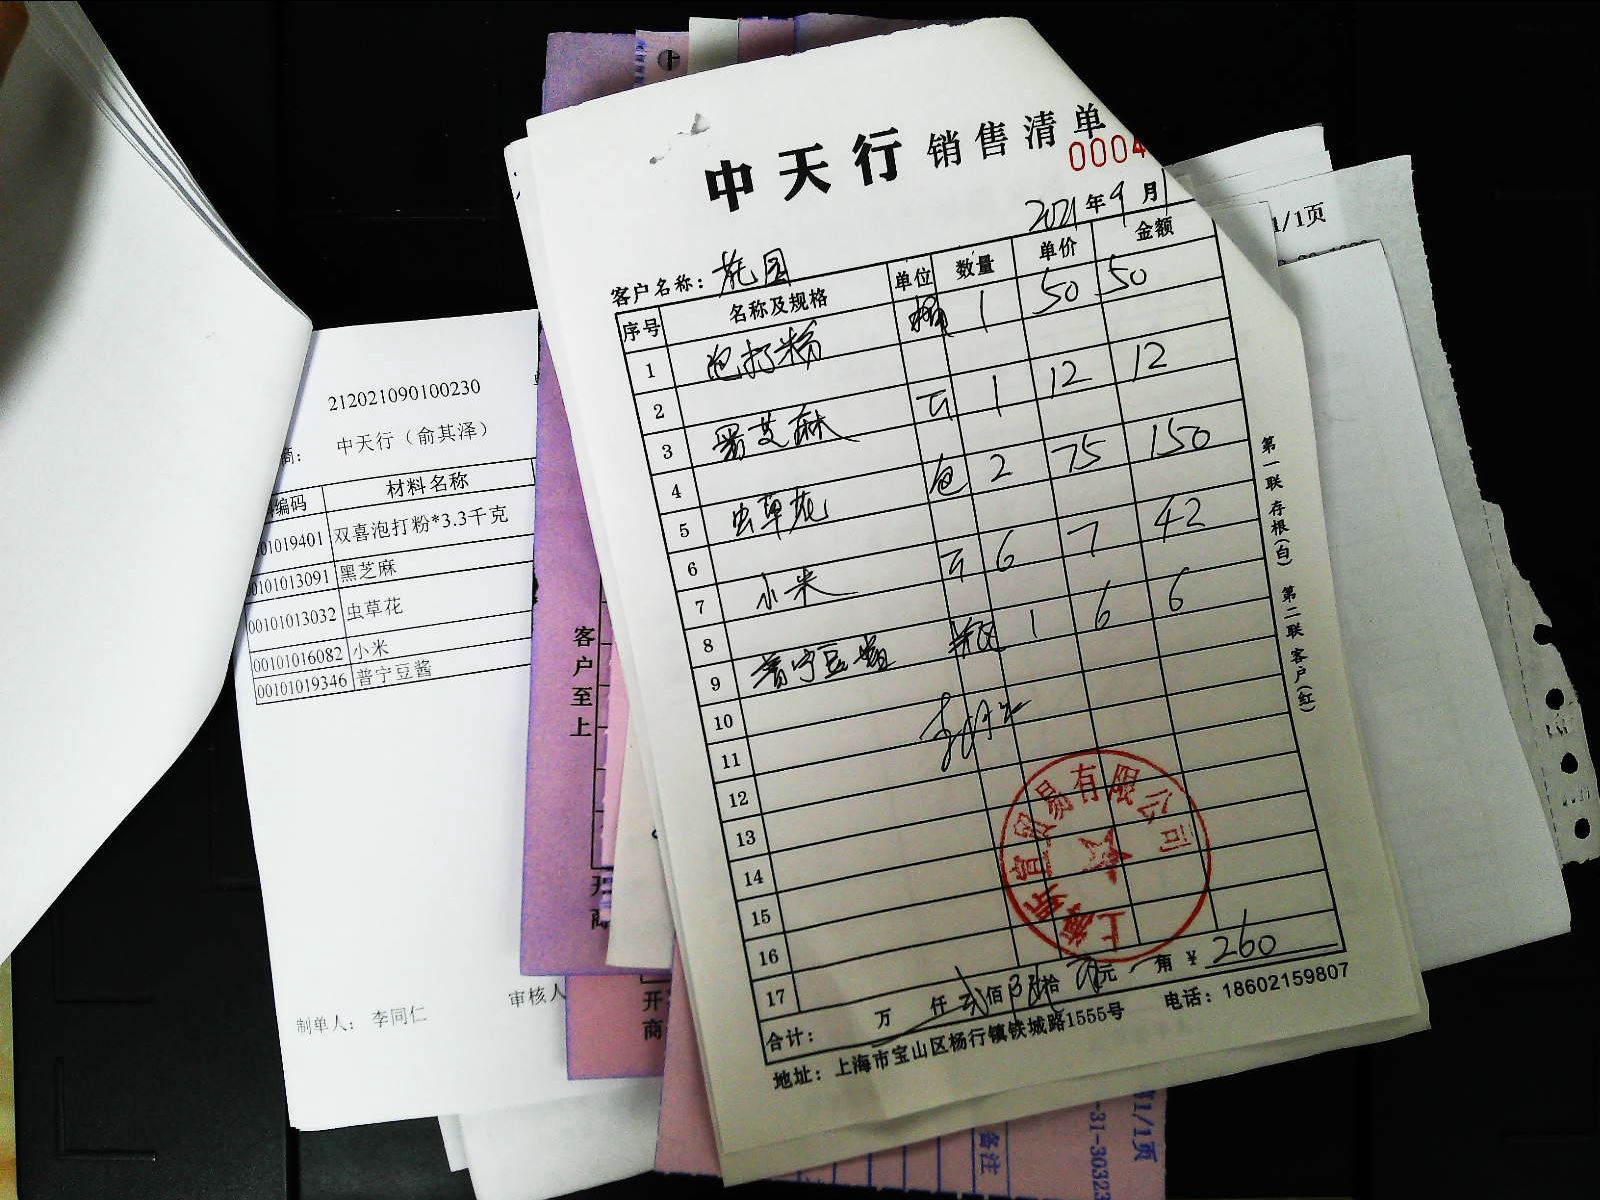 中天行 销售清单
0004
2021年9月1
客户名称：花园
序号 名称及规格 单位 数量 单价 金额
1 泡打粉 桶 1 50 50
2
3 黑芝麻 斤 1 12 12
4
5 虫草花 包 2 75 150
6
7 小米 斤 6 7 42
8
9 普宁豆酱 瓶 1 6 6
10
11
12
13
14
15
16
17
合计： 万 仟 贰佰 陆拾 元 角 ¥ 260
地址：上海市宝山区杨行镇铁城路1555号 电话：18602159807
第一联 存根（白） 第二联 客户（红）
贸易有限公司
上海
212021090100230
商： 中天行（俞其泽）
编码 材料名称
01019401 双喜泡打粉*3.3千克
0101013091 黑芝麻
00101013032 虫草花
00101016082 小米
00101019346 普宁豆酱
制单人： 李同仁
审核人
客户至上
开
商
开
商
1/1页
备注
-31-30323
1/1页